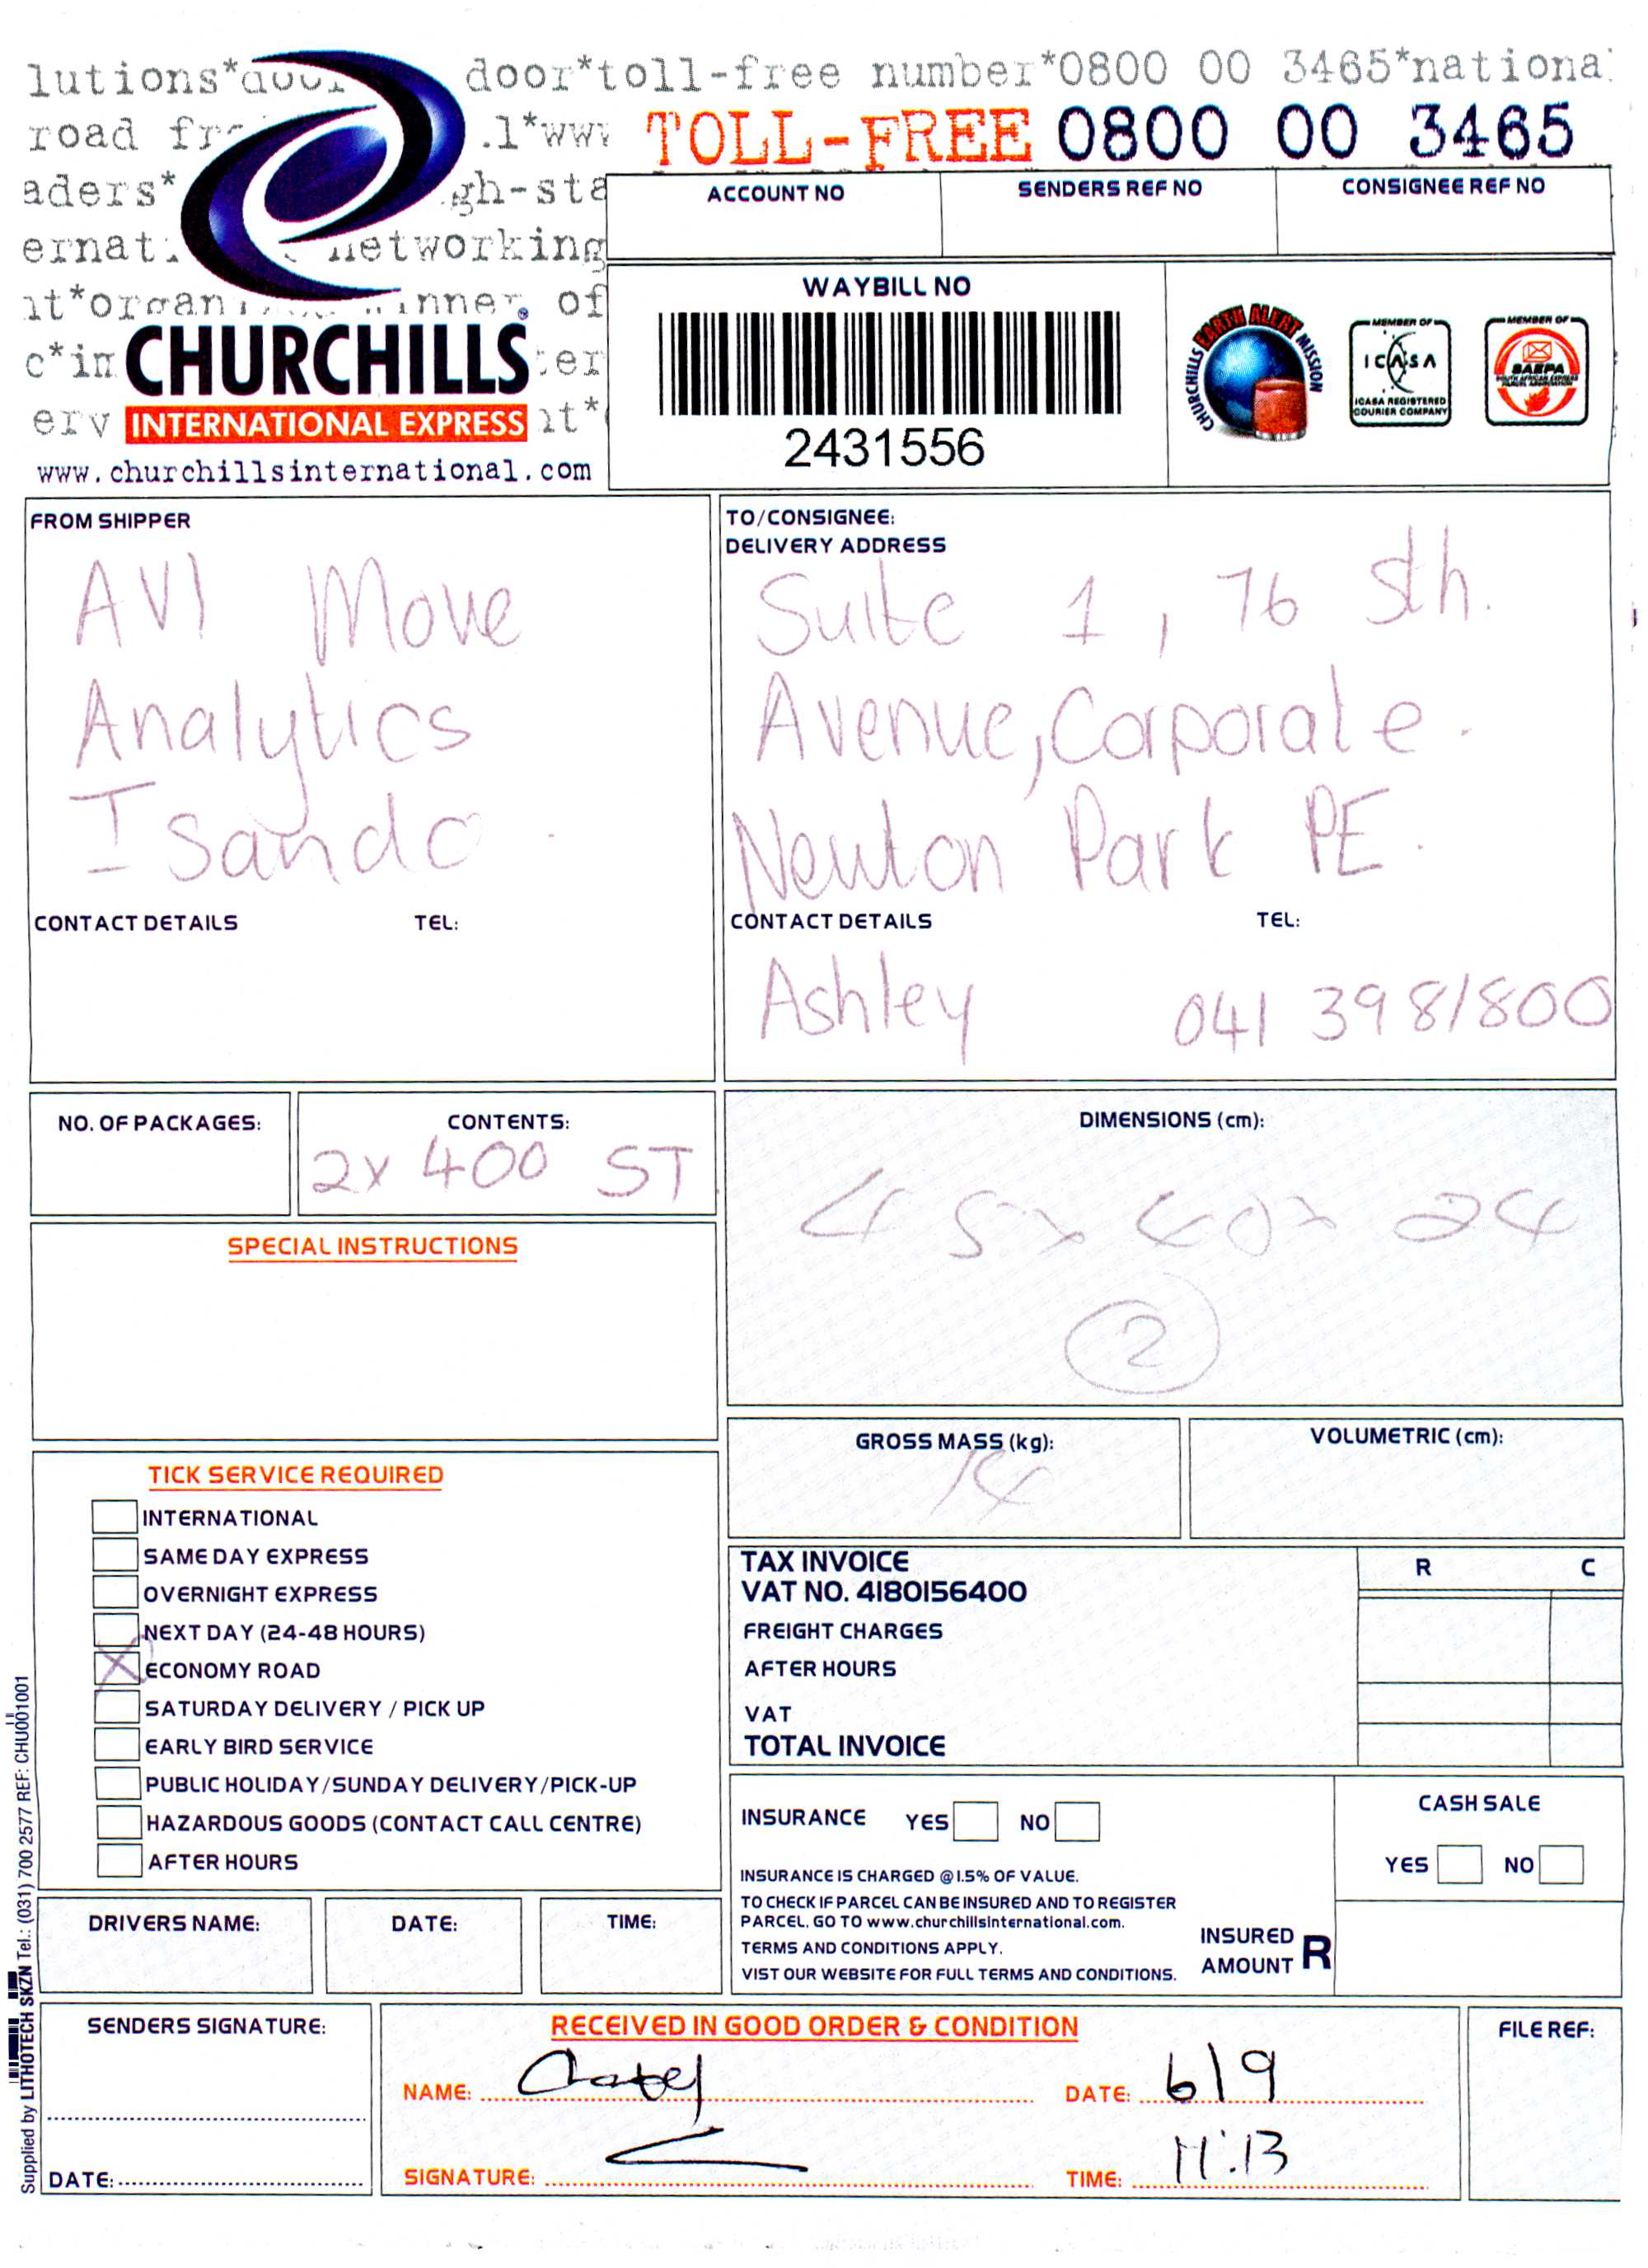 lutions* door*toll-free number*0800 00 3465*national
road .l*www TOLL-FREE 0800 00 3465
aders* gh-sta
networking
of
c*in
erv
ACCOUNT NO SENDERS REF NO CONSIGNEE REF NO
CHURCHILLS
INTERNATIONAL EXPRESS
www.churchillsinternational.com
WAYBILL NO
2431556
CHURCHILLS EARTH ALERT MISSION
MEMBER OF
ICASA
ICASA REGISTERED
COURIER COMPANY
MEMBER OF
SAEPA
SOUTH AFRICAN EXPRESS
PARCEL ASSOCIATION
FROM SHIPPER
AVI Move
Analytics
Isando
CONTACT DETAILS TEL:
TO/CONSIGNEE:
DELIVERY ADDRESS
Suite 1, 76 5th.
Avenue, Corporate.
Newton Park PE.
CONTACT DETAILS TEL:
Ashley 041 3981800
NO. OF PACKAGES: CONTENTS:
2x 400 ST
DIMENSIONS (cm):
45x40x24
2
SPECIAL INSTRUCTIONS
GROSS MASS (kg): VOLUMETRIC (cm):
14
TICK SERVICE REQUIRED
INTERNATIONAL
SAME DAY EXPRESS
OVERNIGHT EXPRESS
NEXT DAY (24-48 HOURS)
X ECONOMY ROAD
SATURDAY DELIVERY / PICK UP
EARLY BIRD SERVICE
PUBLIC HOLIDAY/SUNDAY DELIVERY/PICK-UP
HAZARDOUS GOODS (CONTACT CALL CENTRE)
AFTER HOURS
TAX INVOICE R C
VAT NO. 4180156400
FREIGHT CHARGES
AFTER HOURS
VAT
TOTAL INVOICE
INSURANCE YES NO
CASH SALE
YES NO
INSURANCE IS CHARGED @ 1.5% OF VALUE.
TO CHECK IF PARCEL CAN BE INSURED AND TO REGISTER
PARCEL, GO TO www.churchillsinternational.com.
TERMS AND CONDITIONS APPLY.
VIST OUR WEBSITE FOR FULL TERMS AND CONDITIONS.
INSURED
AMOUNT R
DRIVERS NAME: DATE: TIME:
SENDERS SIGNATURE:
DATE:
RECEIVED IN GOOD ORDER & CONDITION
NAME: DATE: 6/9
SIGNATURE: TIME: 11:13
FILE REF:
Supplied by LITHOTECH SKZN Tel.: (031) 700 2577 REF: CHU001001